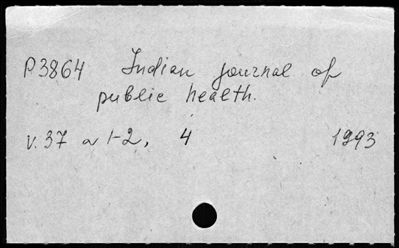 P3864 Indian journal of
public health.
v. 37 n 1-2, 4 1993